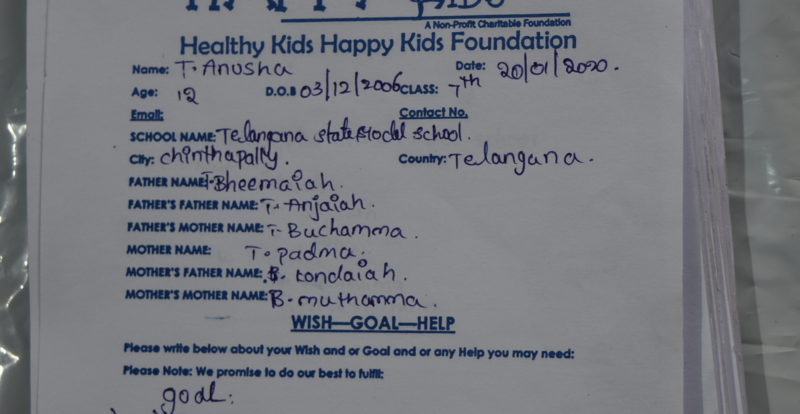 HAPPY KIDS
A Non-Profit Charitable Foundation
Healthy Kids Happy Kids Foundation
Name: T. Anusha Date: 20/01/2020.
Age: 12 D.O.B 03/12/2006 CLASS: 7th
Email: Contact No.
SCHOOL NAME: Telangana state Model school.
City: chinthapally. Country: Telangana.
FATHER NAME: T. Bheemaiah.
FATHER'S FATHER NAME: T. Anjaiah.
FATHER'S MOTHER NAME: T. Buchamma.
MOTHER NAME: T. padma.
MOTHER'S FATHER NAME: B. kondaiah.
MOTHER'S MOTHER NAME: B. muthamma.
WISH—GOAL—HELP
Please write below about your Wish and or Goal and or any Help you may need:
Please Note: We promise to do our best to fulfil:
goal: